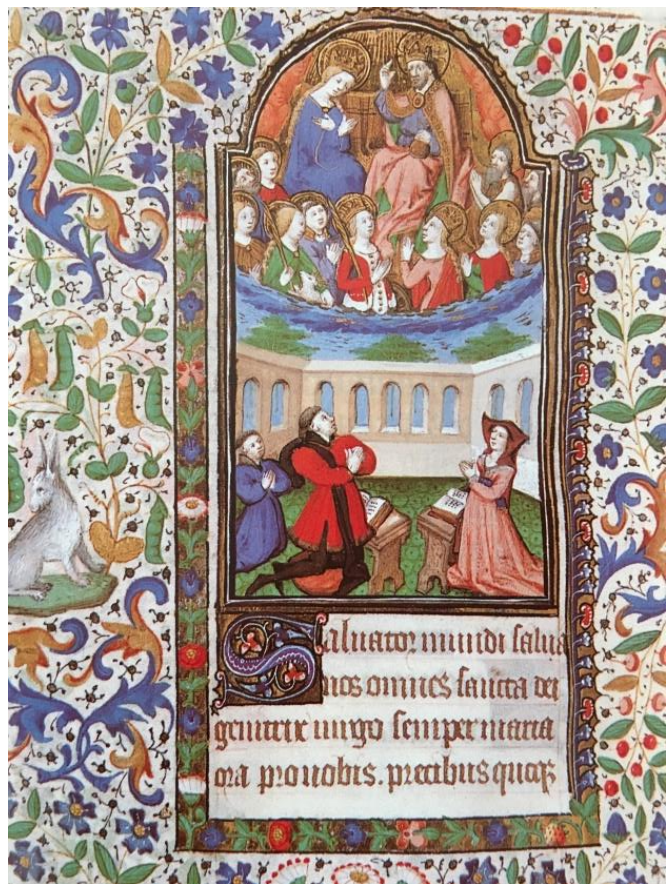 Saluator mundi salua
nos omnes sancta dei
genitrix uirgo semper maria
ora pro nobis. precibus quoq3